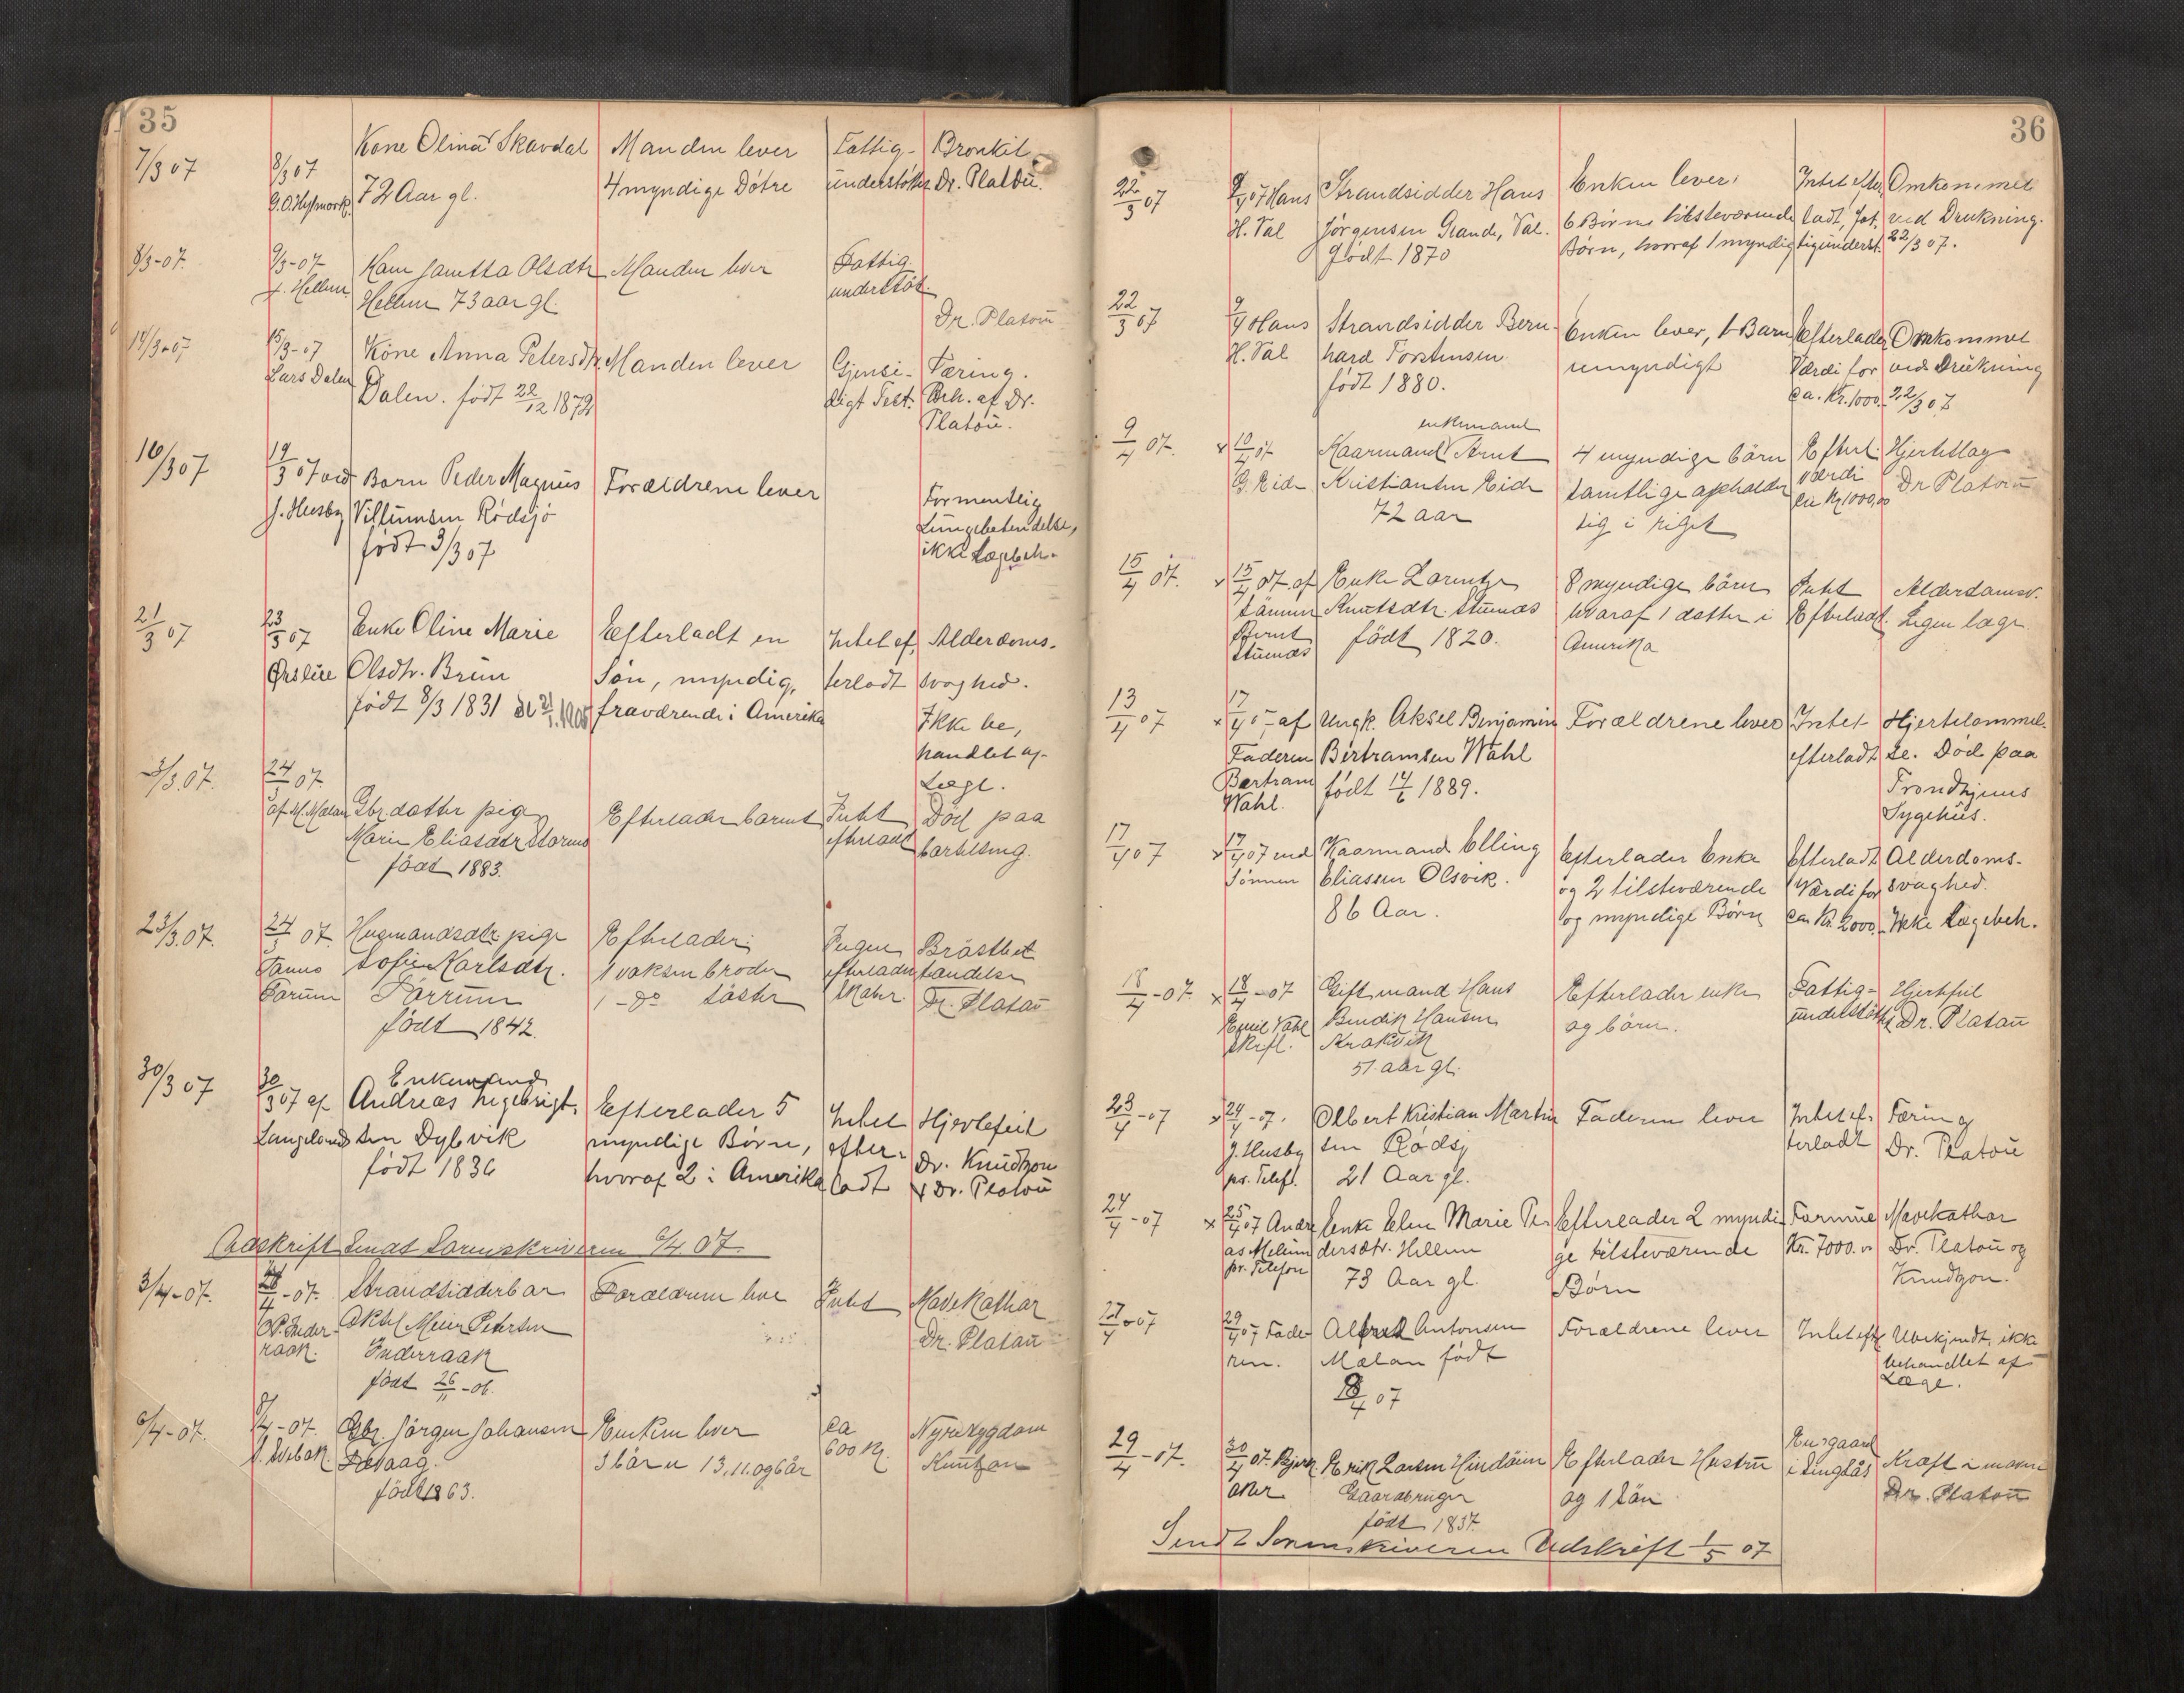 35
7/3 07
8/3 07
Kone Olina Skavdal
Manden lever
Fattig-
Bronkit
72 Aar gl.
4 myndige Dötre
understöttes
Dr. Platou.
8/3-07.
9/3-07
Jametta Olsdtr
Manden lever
Fattig
Hellem
Hellem 73 aar gl.
understöt.
Dr. Platou
14/3-07
15/3-07
Kone Anna Petersdtr.
Manden lever
Gjensi-
Tæring.
Lars Dalen
Dalen. födt 22/12 1872
digt Test.
Beh. af Dr.
Platou.
16/3 07
19/3 07 ved
Barn Peder Magnus
Forældrene lever
Formentlig
J. Husby
Villumsen Rödsjö
Lungebetendelse,
födt 3/3 07
ikke Lægebeh.
21/3 07
23/3 07
Enke Oline Marie
Efterladt en
Intet ef-
Alderdoms-
Olsdtr. Brun
Sön, myndig,
terladt
svaghed.
födt 8/3 1831
fraværende i Amerika
Ikke be,
handlet af
Læge.
24/3 07
af M. Mælan
Gbr. datter pige
Efterlader barnet
Intet
Död paa
Marie Eliasdtr Storms
efterladt
barselseng.
födt 1883.
23/3 07.
24/3 07.
Husmandsdtr. pige
Efterlader
Ingen
Brösthet
Sofie Karlsdtr.
1 voksen broder
efterladen-
tændelse
Farum
Farrum
1 - do söster
skaber
Dr. Platou
födt 1842.
30/3 07
30/3 07 af
Enkemand
Andreas Ingebrigt.
Efterlader 5
Intet
Hjertefeil
sen Dybvik
myndige Börn,
efter-
Dr. Knudtzon
födt 1836
hvoraf 2 i Amerika
ladt
& Dr. Platou
Udskrift sendt Sorenskriveren 6/4 07.
3/4-07.
Strandsidderbar
Forældrene lever
Intet
Mavekathar
O.P. Inder-
Aksel Meier Petersen
Dr. Platou
raak.
Inderraak
födt 26/11-06.
6/4-07.
8/4-07.
Gbr. Jörgen Johansen
Enken lever
ca
Nyresygdom
3 börn 13, 11 og 6 år
600 kr.
Knutzon
födt 1863.
36
22/3 07
9/4 07 Hans
Strandsidder Hans
Enken lever.
Intet efter
Omkommet
H. Val
Jörgensen Grande, Val.
6 Börn tilstedeværende
ladt, fat-
ved Drukning.
Födt 1870
Börn, hvoraf 1 myndig
tigunderst.
22/3 07.
22/3 07
9/4 Hans
Strandsidder Bern-
Enken lever, 1 Barn
Efterlader
Omkommet
H. Val
hard Torstensen
umyndigt
Værdi for
ved Drukning
födt 1880.
ca. Kr. 1000.
22/3 07
9/4 07.
x 10/4 07
enkemand
Kaarmand Arnt
4 myndige börn
Efterl.
Hjerteslag
G. Eide
Kristiansen Eide
samtlige opholder
værdi
Dr Platou
72 aar
sig i riget
ca Kr 1000,00
15/4 07.
x 15/4 07 af
Enke Lorentze
8 myndige börn
Intet
Alderdomsv.
sönnen
Knutsdtr. Stumæs
hvoraf 1 datter i
Efterladt.
Ingen læge
Bernt
födt 1820.
Amerika
Stumæs
13/4 07
x 17/4 07 af
Ungk. Aksel Benjamin
Forældrene lever
Intet
Hjertelammel-
Faderen
Bertramsen Wahl
efterladt
se. Död paa
Bertram
födt 14/6 1889.
Trondhjems
Wahl.
Sygehus.
17/4 07
x 17/4 07 ved
Kaarmand Elling
Efterlader Enke
Efterladt
Alderdoms-
sönnen
Eliassen Olsvik.
og 2 tilstedeværende
Værdi for
svaghed.
86 Aar.
og myndige Börn
ca. Kr. 2000.
Ikke Lægebeh.
18/4-07.
x 18/4-07
Gift mand Hans
Efterlader enke
Fattig-
Hjertfeil
Emil Vahl
Bendik Hansen
og börn.
understöttet
Dr. Platou
skrftl.
Krakvik
51 aar gl.
23/4-07
x 24/4-07.
Olbert Kristian Martin
Faderen lever
Intet ef-
Tæring
J. Husby
sen Rödsj
terladt
Dr. Platou
pr. Telef.
21 Aar gl.
24/4-07
x 25/4 07 Andre
Enke Elen Marie Pe-
Efterlader 2 myndi-
Formue
Mavekathar
as Melum
dersdtr. Hellem
ge tilstedeværende
Kr. 7000.
Dr. Platou og
pr. Telefon
73 Aar gl.
Börn
Knudtzon.
27/4-07
29/4 07 Fade-
Alfred Antonsen
Forældrene lever
Intet eft.
Ubekjendt, ikke
ren.
Mælan födt
behandlet af
18/4 07
Læge.
29/4-07.
30/4 07. Bjerk
Erik Larsen Hindöien
Efterlader Hustru
Kraft i maven
aker
Gaardbruger
og 1 sön
Dr. Platou
födt 1837.
Sendt Sorenskriveren Udskrift 1/5 07